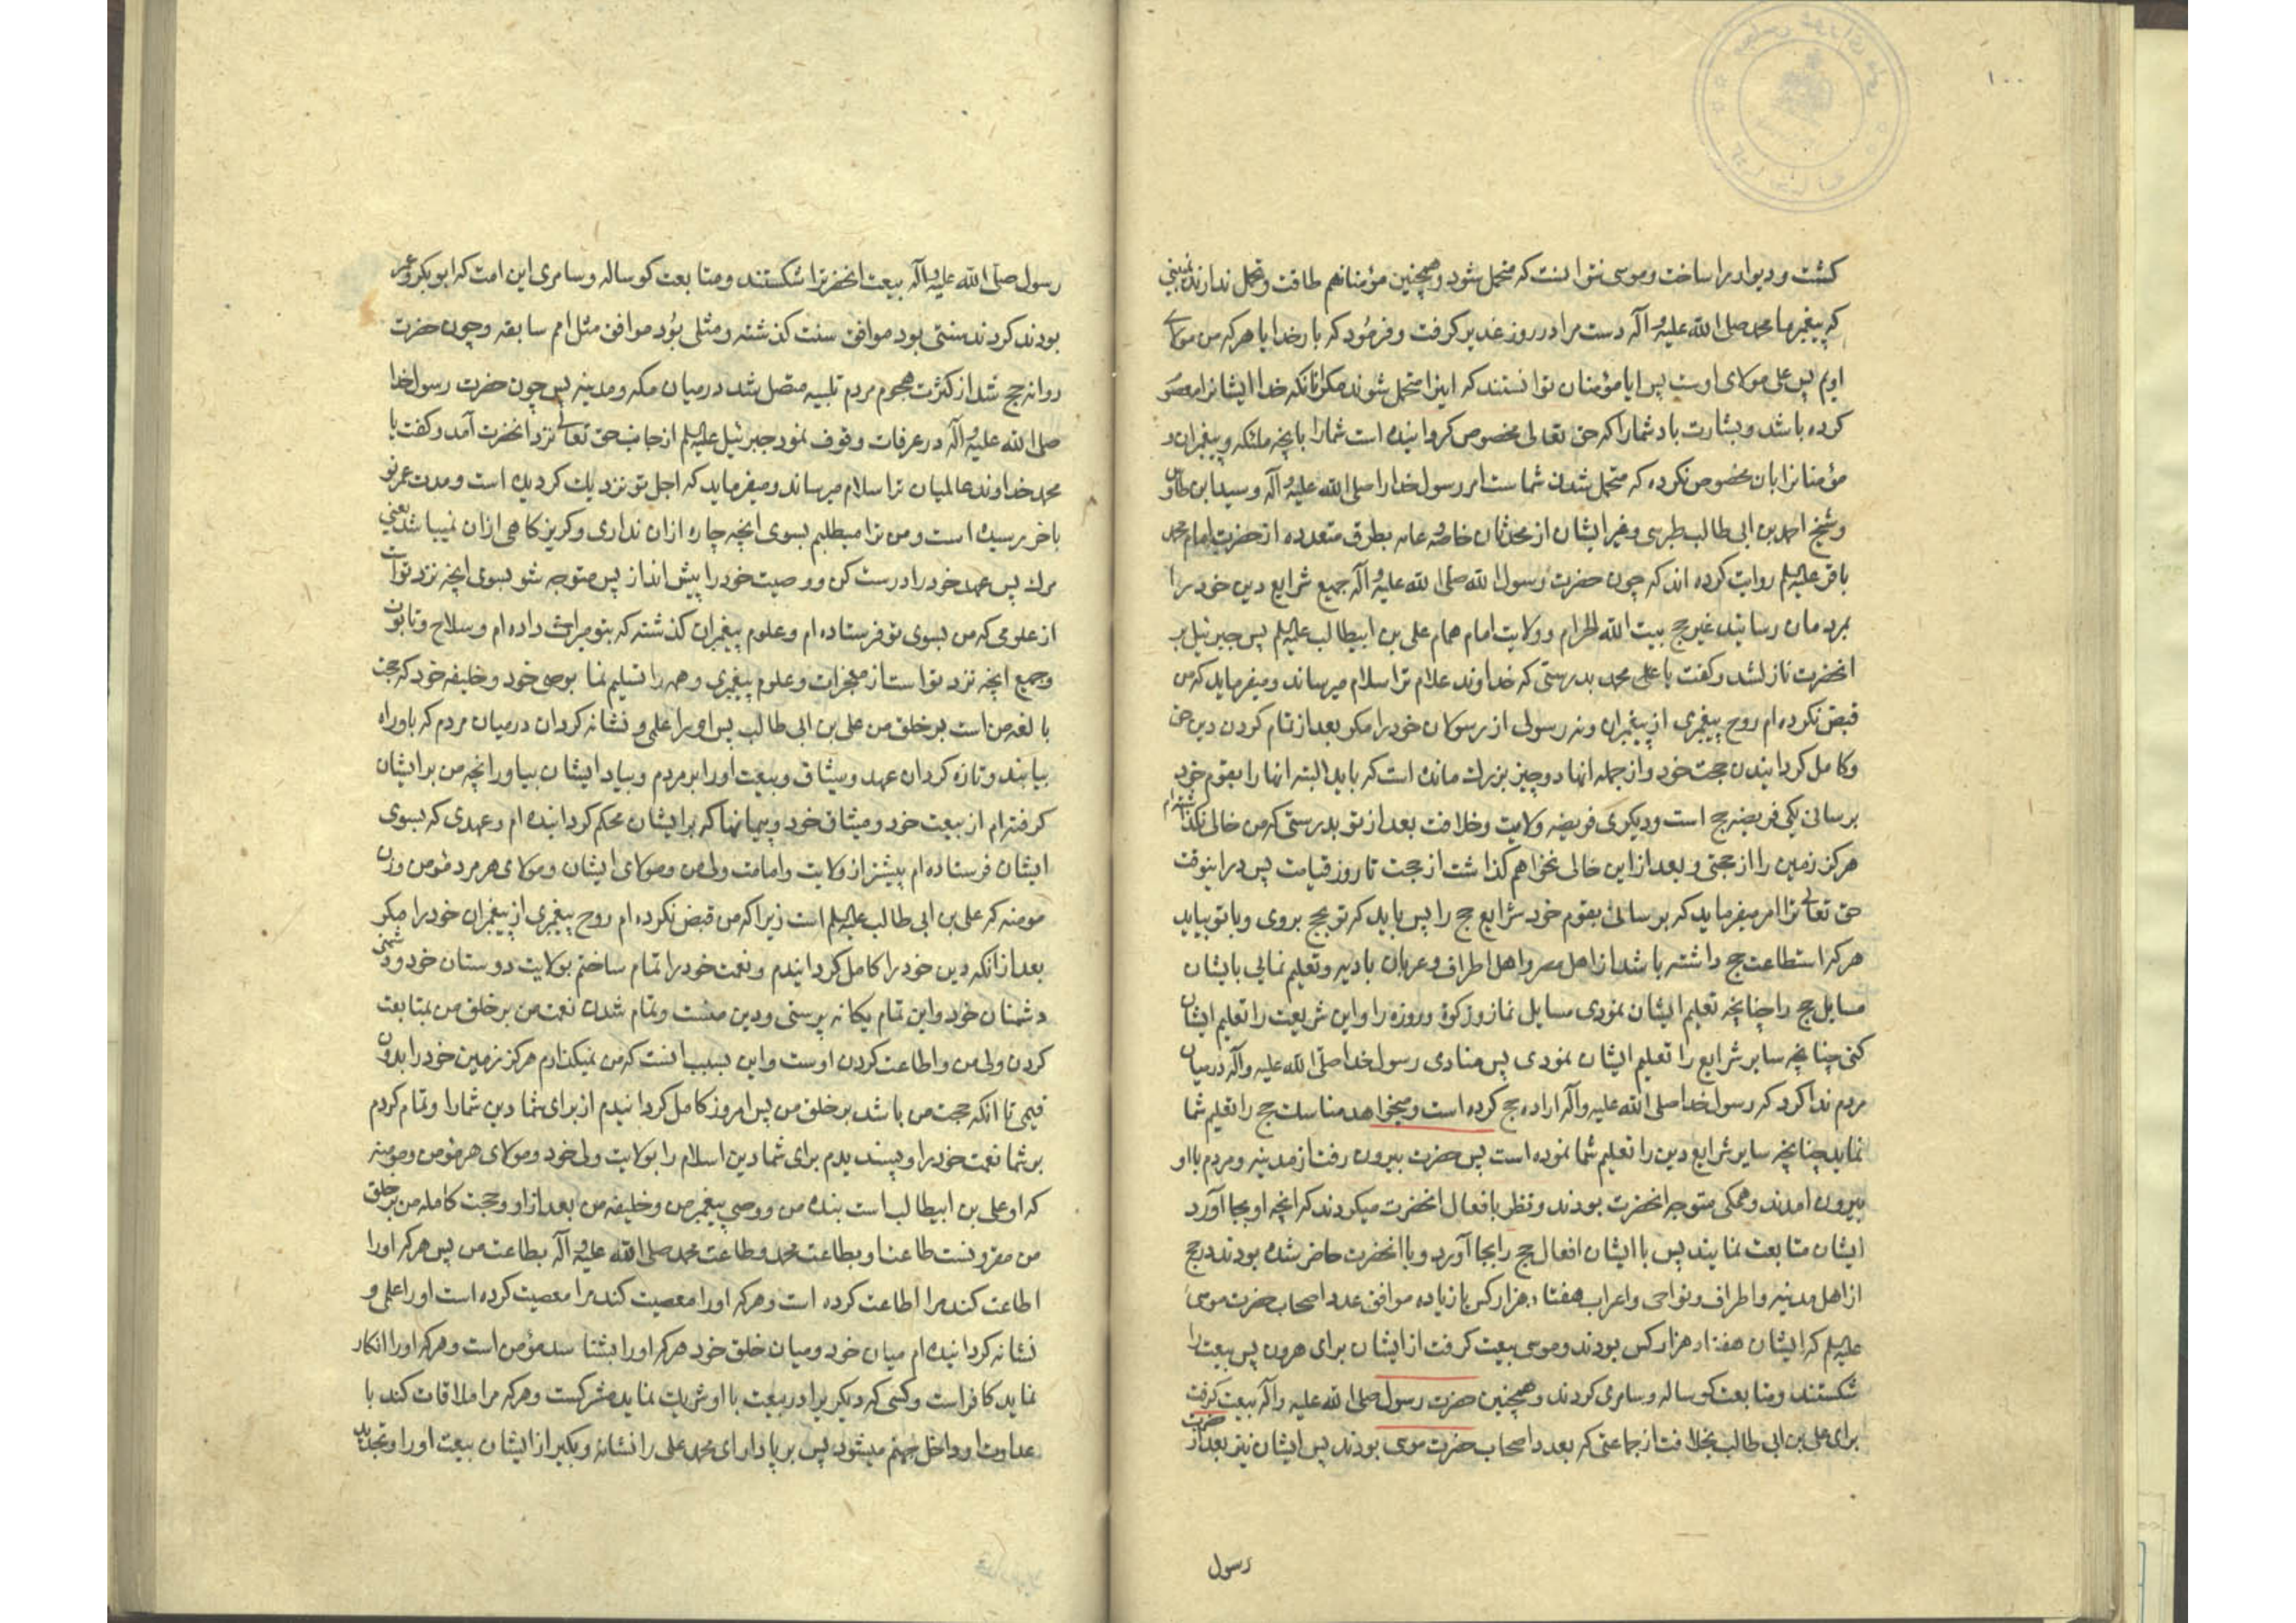 ۱۰۰
کشت و دیوار را ساخت و موسی نتوانست که متحمل شود و همچنین مؤمنانهم طاقت و تحمل ندارند نمی‌بینی
که پیغمبر ما محمد صلی الله علیه و آله دست مرا در روز غدیر کرفت و فرمود که بار خدایا هر که من مولای
اویم پس علی مولای اوست پس ایا مؤمنان توانستند که اینرا متحمل شوند مکر انانکه خدا ایشانرا معصوم
کرده باشد و بشارت باد شما را که حق تعالی مخصوص کردانیده است شما را بانچه ملئکه و پیغمبران و
مؤمنانرا بان مخصوص نکرده که متحمل شدن شماست امر رسول خدا را صلی الله علیه و آله و سید ابن طاوس
و شیخ احمد بن ابی طالب طبرسی و غیر ایشان از محدثان خاصه و عامه بطرق متعدده از حضرت امام محمد
باقر علیه السلم روایت کرده اند که چون حضرت رسول الله صلی الله علیه و آله جمیع شرایع دین خود را
بمردمان رسانید غیر حج بیت الله الحرام و ولایت امام همام علی بن ابیطالب علیه السلم پس جبرئیل بر
انحضرت نازلشد و کفت یا محمد بدرستی که خداوند علام ترا سلام میرساند و میفرماید که من
قبض نکرده ام روح پیغمبری از پیغمبران و نه رسولی از رسولان خود را مکر بعد از تمام کردن دین حق
و کامل کردانیدن حجت خود و از جمله انها دو چیز بزرک مانده است که باید البته انها را بقوم خود
برسانی یکی فریضه حج است و دیکری فریضه ولایت و خلافت بعد از تو بدرستی که من خالی نکذاشته ام
هرکز زمین را از حجتی و بعد از این خالی نخواهم کذاشت از حجت تا روز قیامت پس در اینوقت
حق تعالی ترا امر میفرماید که برسانی بقوم خود شرایع حج را پس باید که تو بحج بروی و با تو بیاید
هر که استطاعت حج داشته باشد از اهل مصر و اهل اطراف و عربان بادیه و تعلیم نمائی بایشان
مسایل حج را چنانچه تعلیم ایشان نمودی مسایل نماز و زکوة و روزه را و این شریعت را تعلیم ایشان
کنی چنانچه سایر شرایع را تعلیم ایشان نمودی پس منادی رسول خدا صلی الله علیه و آله در میان
مردم ندا کرد که رسول خدا صلی الله علیه و آله اراده حج کرده است و میخواهد مناسک حج را تعلیم شما
نماید چنانچه سایر شرایع دین را تعلیم شما نموده است پس حضرت بیرون رفت از مدینه و مردم با او
بیرون امدند و همکی متوجه انحضرت بودند و نظر بافعال انحضرت میکردند که انچه او بجا آورد
ایشان متابعت نمایند پس با ایشان افعال حج را بجا آورد و با انحضرت حاضر شده بودند در حج
از اهل مدینه و اطراف و نواحی و اعراب هفتاد هزار کس یا زیاده موافق عدد اصحاب حضرت موسی
علیه السلم که ایشان هفتاد هزار کس بودند و موسی بیعت کرفت از ایشان برای هرون پس بیعت را
شکستند و متابعت کوساله و سامری کردند و همچنین حضرت رسول صلی الله علیه و آله بیعت کرفت
برای علی بن ابی طالب بخلافت از جماعتی که بعدد اصحاب حضرت موسی بودند پس ایشان نیز بعد از حضرت
رسول
رسول صلی الله علیه و آله بیعت انحضرترا شکستند و متابعت کوساله و سامری این امت که ابو بکر و عمر
بودند کردند سنتی بود موافق سنت کذشته و مثلی بود موافق مثل امم سابقه و چون حضرت
روانه حج شد از کثرت هجوم مردم تلبیه متصل شد در میان مکه و مدینه پس چون حضرت رسول خدا
صلی الله علیه و آله در عرفات وقوف نمود جبرئیل علیه السلم از جانب حق تعالی نزد انحضرت آمد و کفت یا
محمد خداوند عالمیان ترا سلام میرساند و میفرماید که اجل تو نزدیک کردیده است و مدت عمر تو
باخر رسیده است و من ترا میطلبم بسوی انچه چاره از ان نداری و کریزکاهی ازان نمیباشد یعنی
مرک پس عهد خود را درست کن و وصیت خود را پیش انداز پس متوجه شو بسوی انچه نزد تو است
از علومی که من بسوی تو فرستاده ام و علوم پیغمبران کذشته که بتو میراث داده ام و سلاح و تابوت
و جمیع انچه نزد تو است از معجزات و علوم پیغمبری و همه را تسلیم نما بوصی خود و خلیفه خود که حجت
بالغه من است بر خلق من علی بن ابی طالب پس او را علمی و نشانه کردان در میان مردم که باو راه
بیابند و تازه کردان عهد و میثاق و بیعت او را بر مردم و بیاد ایشان بیاور انچه من بر ایشان
کرفته ام از بیعت خود و میثاق خود و پیمانها که بر ایشان محکم کردانیده ام و عهدی که بسوی
ایشان فرستاده ام پیشتر از ولایت و امامت ولی من و مولای ایشان و مولای هر مرد مؤمن و زن
مومنه که علی بن ابی طالب علیه السلم است زیرا که من قبض نکرده ام روح پیغمبری از پیغمبران خود را مکر
بعد از انکه دین خود را کامل کردانیدم و نعمت خود را تمام ساختم بولایت دوستان خود و دشمنی
دشمنان خود و این تمام یکانه پرستی و دین منست و تمام شدن نعمت من بر خلق من بمتابعت
کردن ولی من و اطاعت کردن اوست و این بسبب انست که من نمیکذارم هرکز زمین خود را بدون
قیمی تا انکه حجت من باشد بر خلق من پس امروز کامل کردانیدم از برای شما دین شما را و تمام کردم
بر شما نعمت خود را و پسندیدم برای شما دین اسلام را بولایت ولی خود و مولای هر مؤمن و مومنه
که او علی بن ابیطالب است بنده من و وصی پیغمبر من و خلیفه من بعد از او و حجت کامله من بر خلق
من مقرونست طاعت او بطاعت محمد و طاعت محمد صلی الله علیه و آله بطاعت من پس هر که او را
اطاعت کند مرا اطاعت کرده است و هر که او را معصیت کند مرا معصیت کرده است او را علمی و
نشانه کردانیده ام میان خود و میان خلق خود هر که او را بشناسد مؤمن است و هر که او را انکار
نماید کافر است و کسی که دیکریرا در بیعت با او شریک نماید مشرکست و هر که مرا ملاقات کند با
عداوت او داخل جهنم میشود پس بر پا دار ای محمد علی را نشانه و بکیر از ایشان بیعت او را و تجدید